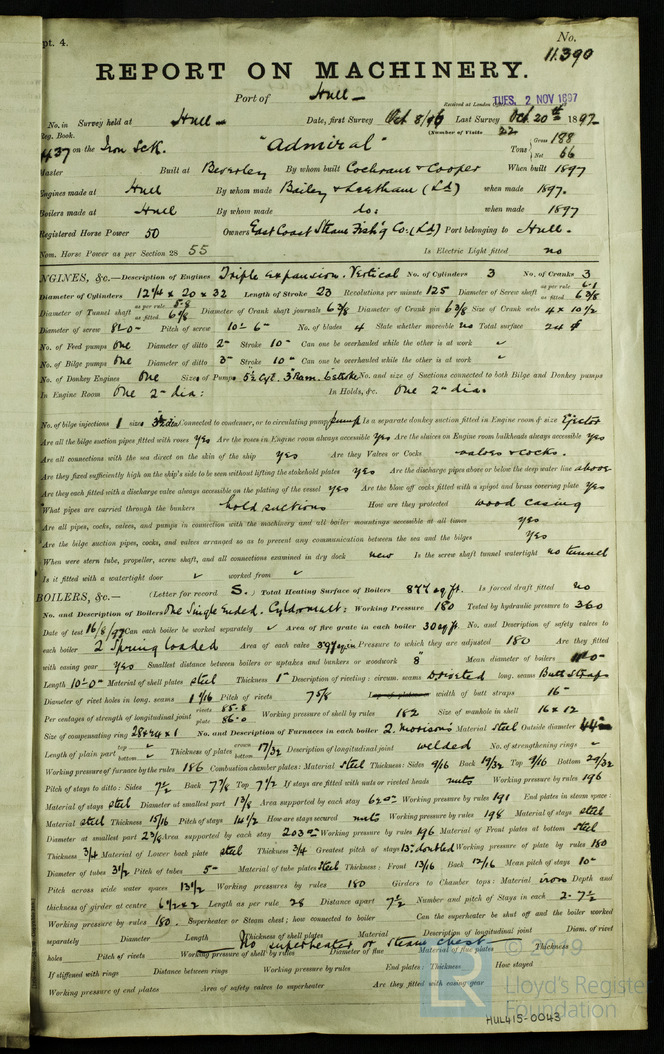 pt. 4.
No. 11.390
REPORT ON MACHINERY.
Port of Hull
Received at London TUES. 2 NOV 1897
No. in Survey held at Hull Date, first Survey Oct 8/96 Last Survey Oct. 20th 1897
Reg. Book. (Number of Visits 22
437 on the Iron Sc.K. "Admiral" Tons Gross 188 Net 66
Master Built at Beverley By whom built Cochrane & Cooper When built 1897
Engines made at Hull By whom made Bailey & Leetham (Ld) when made 1897.
Boilers made at Hull By whom made do: when made 1897
Registered Horse Power 50 Owners East Coast Steam Fish'g Co: (Ld) Port belonging to Hull.
Nom. Horse Power as per Section 28 55 Is Electric Light fitted no
ENGINES, &c.—Description of Engines Triple Expansion. Vertical No. of Cylinders 3 No. of Cranks 3
Diameter of Cylinders 12 1/4 x 20 x 32 Length of Stroke 23 Revolutions per minute 125 Diameter of Screw shaft as per rule 6.1 as fitted 6 3/8
Diameter of Tunnel shaft as per rule 5.8 as fitted 6 1/8 Diameter of Crank shaft journals 6 3/8 Diameter of Crank pin 6 3/8 Size of Crank webs 4 x 10 1/2
Diameter of screw 8-0 Pitch of screw 10-6 No. of blades 4 State whether moveable no Total surface 24
No. of Feed pumps One Diameter of ditto 2" Stroke 10" Can one be overhauled while the other is at work "
No. of Bilge pumps One Diameter of ditto 3" Stroke 10" Can one be overhauled while the other is at work "
No. of Donkey Engines One Sizes of Pumps 5 1/2 Cyl. 3 Ram. 6 stroke No. and size of Suctions connected to both Bilge and Donkey pumps
In Engine Room One 2" dia: In Holds, &c. One 2" dia.
No. of bilge injections 1 sizes 3 1/2 dia Connected to condenser, or to circulating pump pump Is a separate donkey suction fitted in Engine room & size Ejector
Are all the bilge suction pipes fitted with roses yes Are the roses in Engine room always accessible yes Are the sluices on Engine room bulkheads always accessible yes
Are all connections with the sea direct on the skin of the ship yes Are they Valves or Cocks valves & cocks.
Are they fixed sufficiently high on the ship's side to be seen without lifting the stokehold plates yes Are the discharge pipes above or below the deep water line above
Are they each fitted with a discharge valve always accessible on the plating of the vessel yes Are the blow off cocks fitted with a spigot and brass covering plate yes
What pipes are carried through the bunkers hold suctions How are they protected wood casing
Are all pipes, cocks, valves, and pumps in connection with the machinery and all boiler mountings accessible at all times yes
Are the bilge suction pipes, cocks, and valves arranged so as to prevent any communication between the sea and the bilges yes
When were stern tube, propeller, screw shaft, and all connections examined in dry dock new Is the screw shaft tunnel watertight no tunnel
Is it fitted with a watertight door " worked from "
BOILERS, &c.— (Letter for record S.) Total Heating Surface of Boilers 877 sq. ft. Is forced draft fitted no
No. and Description of Boilers One Single Ended. Cyl. Mult: Working Pressure 180 Tested by hydraulic pressure to 360
Date of test 16/8/97 Can each boiler be worked separately " Area of fire grate in each boiler 30 sq ft. No. and Description of safety valves to
each boiler 2 Spring loaded Area of each valve Pressure to which they are adjusted 180 Are they fitted
with easing gear yes Smallest distance between boilers or uptakes and bunkers or woodwork 8" Mean diameter of boilers
Length 10-0 Material of shell plates steel Thickness 1" Description of riveting: circum. seams D. riveted long. seams Butt Straps
Diameter of rivet holes in long. seams 1 1/16 Pitch of rivets 7 5/8 width of butt straps 16"
Per centages of strength of longitudinal joint rivets 85.8 plate 86.0 Working pressure of shell by rules 182 Size of manhole in shell 16 x 12
Size of compensating ring 28x24x1 No. and Description of Furnaces in each boiler 2. Morison's Material Steel Outside diameter 44
Length of plain part top " bottom " Thickness of plates crown bottom 17/32 Description of longitudinal joint welded No. of strengthening rings "
Working pressure of furnace by the rules 186 Combustion chamber plates: Material Steel Thickness: Sides 9/16 Back 19/32 Top 9/16 Bottom 29/32
Pitch of stays to ditto: Sides 7 1/2 Back 7 7/8 Top 7 1/2 If stays are fitted with nuts or riveted heads nuts Working pressure by rules 196
Material of stays steel Diameter at smallest part 1 3/8 Area supported by each stay 62 Working pressure by rules 191 End plates in steam space:
Material steel Thickness 15/16 Pitch of stays 14 1/2 How are stays secured nuts Working pressure by rules 198 Material of stays steel
Diameter at smallest part 2 3/8 Area supported by each stay 203 Working pressure by rules 196 Material of Front plates at bottom steel
Thickness 3/4 Material of Lower back plate steel Thickness 3/4 Greatest pitch of stays 13" doubled Working pressure of plate by rules 180
Diameter of tubes 3 1/2 Pitch of tubes 5" Material of tube plates Steel Thickness: Front 13/16 Back 13/16 Mean pitch of stays 10"
Pitch across wide water spaces 13 1/2 Working pressures by rules 180 Girders to Chamber tops: Material iron Depth and
thickness of girder at centre 6 1/2 x 2 Length as per rule 28 Distance apart 7 1/2 Number and pitch of Stays in each 2. 7 1/2
Working pressure by rules 180. Superheater or Steam chest; how connected to boiler Can the superheater be shut off and the boiler worked
separately Diameter Length Thickness of shell plates Material Description of longitudinal joint Diam. of rivet
No superheater or steam chest
holes Pitch of rivets Working pressure of shell by rules Diameter of flue Material of flue plates Thickness
If stiffened with rings Distance between rings Working pressure by rules End plates: Thickness How stayed
Working pressure of end plates Area of safety valves to superheater Are they fitted with easing gear
© 2019
Lloyd's Register
Foundation
HUL415-0043